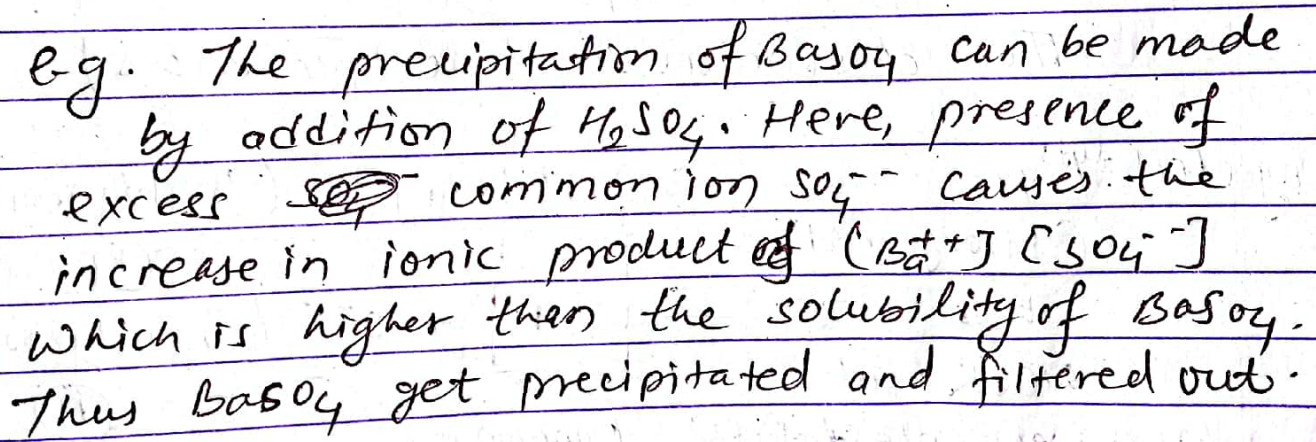 e.g. The precipitation of BaSO4 can be made
by addition of H2SO4. Here, presence of
excess common ion SO4-- causes the
increase in ionic product of [Ba++] [SO4--]
which is higher than the solubility of BaSO4.
Thus BaSO4 get precipitated and filtered out.